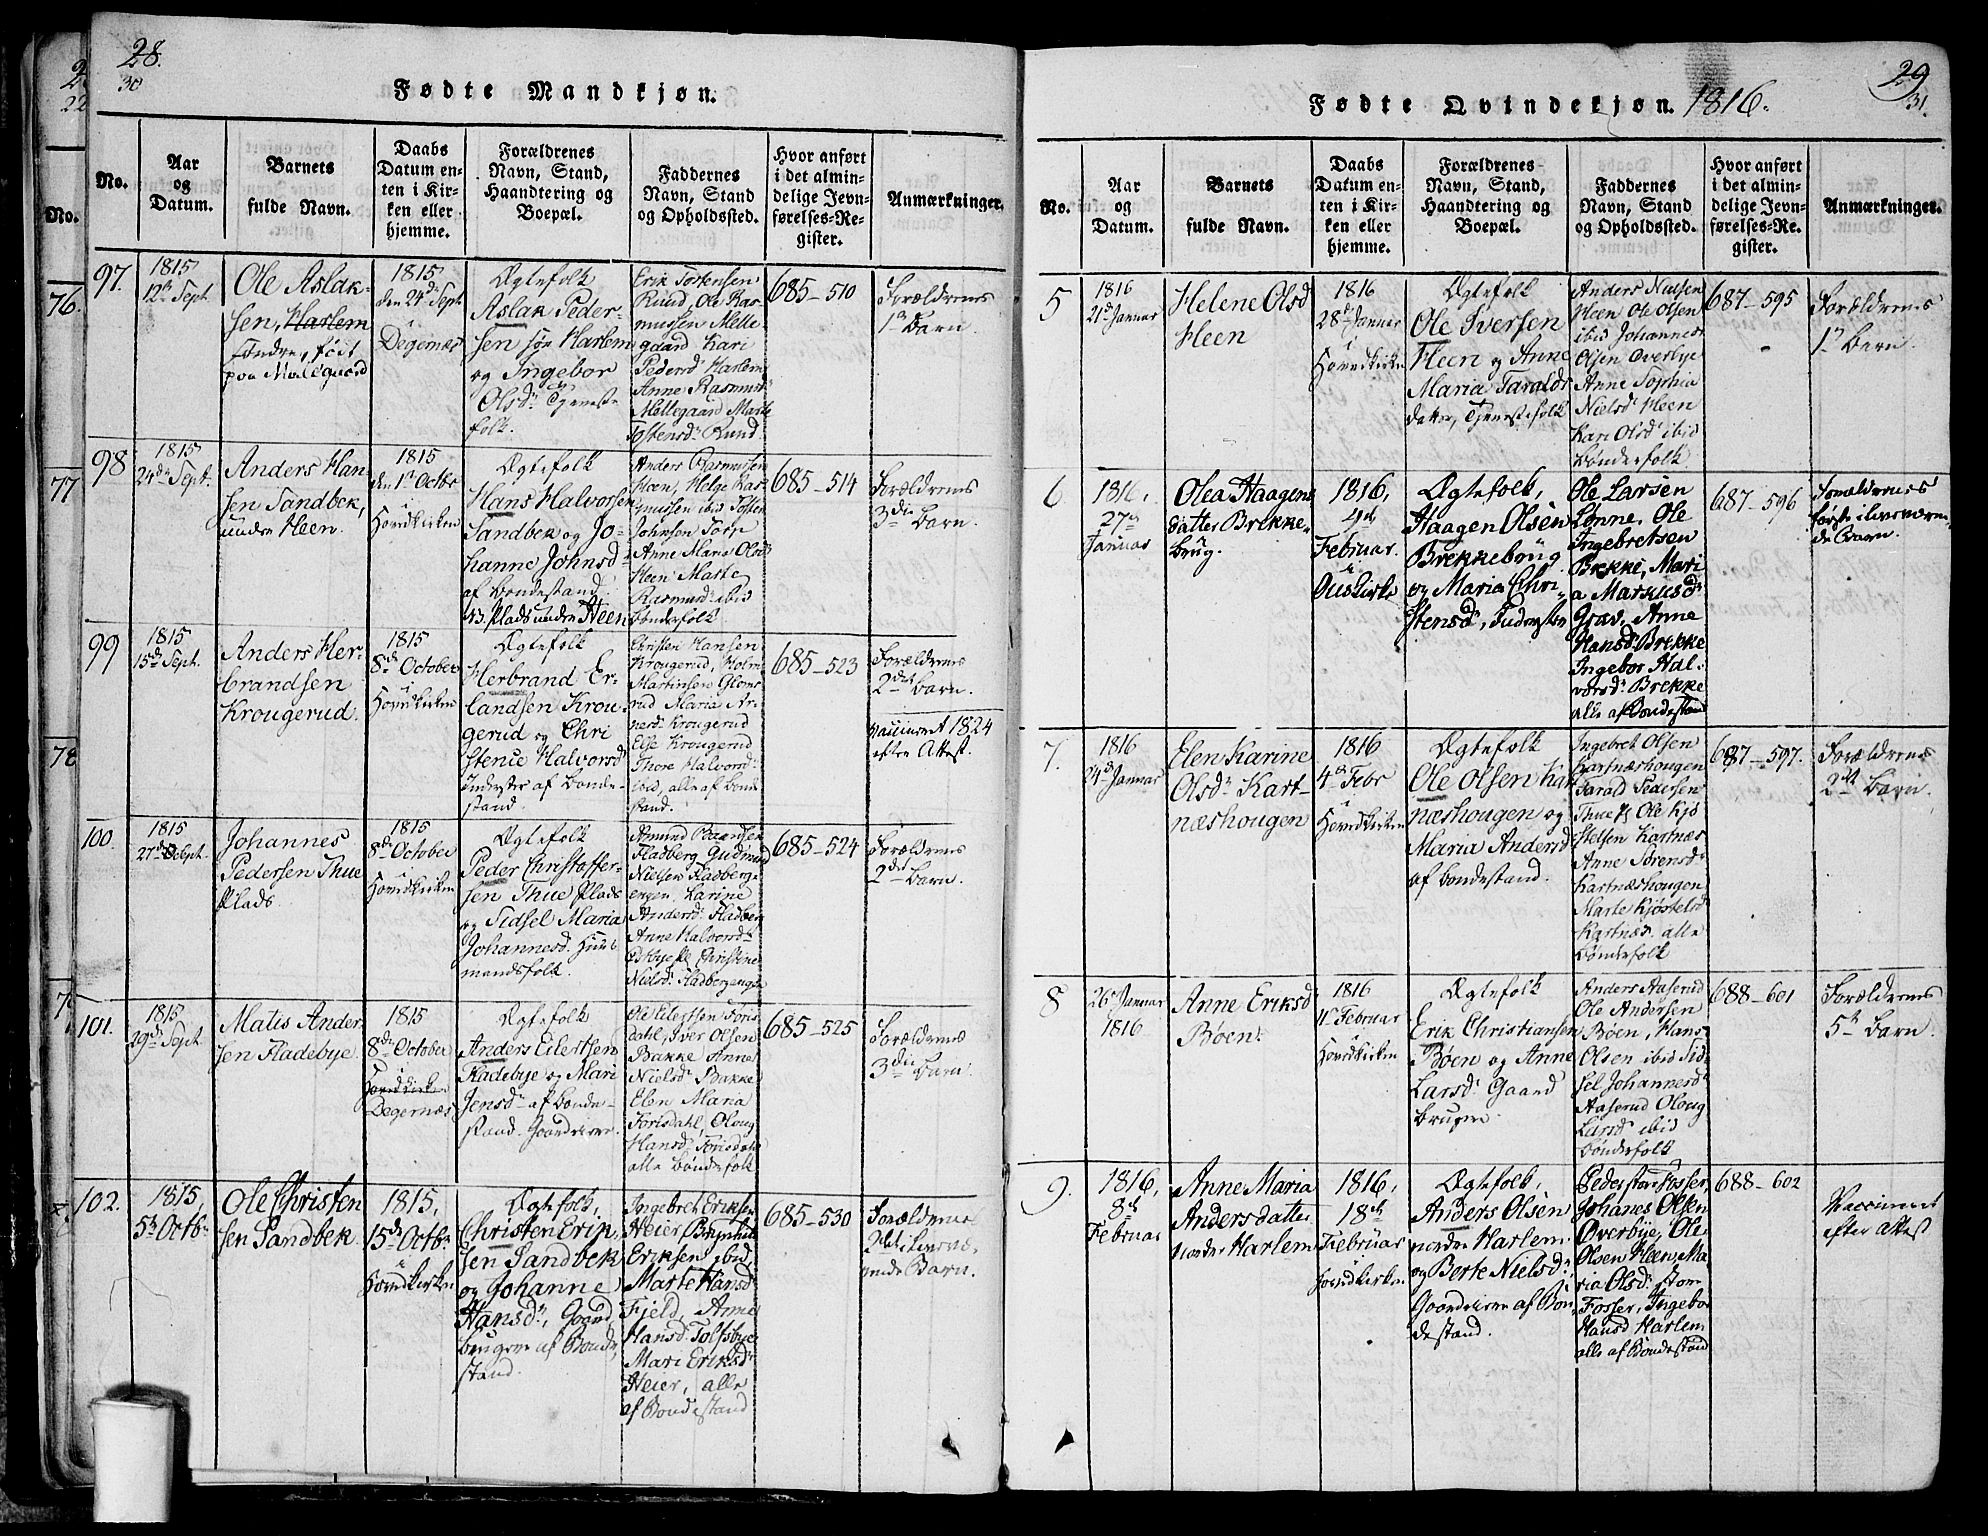 28.
30
Fødte Mandkjøn.
No.
Aar
og
Datum.
Barnets
fulde Navn.
Daabs
Datum en-
ten i Kir-
ken eller
hjemme.
Forældrenes
Navn, Stand,
Haandtering og
Boepæl.
Faddernes
Navn, Stand
og Opholdssted.
Hvor anført
i det almin-
delige Jevn-
førelses-Re-
gister.
Anmærkninger.
97.
1815
12te Sept.
Ole Aslak-
sen, Harlem
1815
den 24de Sept
i
Degernæs
Ægtefolk
Aslak Peder-
sen Harlem
og Ingebor
Olsdr. Tjeneste
folk.
Erik Tostensen
Ruud, Ole Ras-
mussen Melle-
gaard Kari
Pedersd Harlem
Anne Rasmusd
Mellegaard Marte
Tostensdr Ruud.
685-510
Forældrenes
1te Barn.
98
1815
24de Sept.
Anders Han-
sen Sandbek,
under Heen.
1815
den 1te Octbr
i
Hovedkirken
Ægtefolk
Hans Halvorsen
Sandbek og Jo-
hanne Johnsd
af Bondestand.
NB. Plads under Heen
Anders Rasmussen
Heen, Helge Ras-
mussen ibid Tosten
Johnsen Torp
Anne Maria Olsd
Heen Marte
Rasmusdr ibid
Bønderfolk
685-514
Forældrenes
3die Barn.
99
1815
15de Sept.
Anders Her-
brandsen
Krougerud.
1815
8de October
i
Hovedkirken
Ægtefolk
Herbrand Er-
landsen Krou-
gerud og Chri
stence Halvorsd
Inderster af Bonde-
stand.
Christen Hansen
Krougerud, Holm
Martinsen Gloms
rud Maria Ar-
nesd Krougerud
Else Krougerud
Thore Halvorsd
ibid, alle af Bonde
stand.
685-523
Forældrenes
2det Barn.
Vaccineret 1824
efter Attest.
100.
1815
27de Sept.
Johannes
Pedersen Thue
Plads.
1815
8de October
i
Hovedkirken
Ægtefolk
Peder Christoffer-
sen Thue Plads
og Sidsel Maria
Johannesd. Huus
mandsfolk.
Amund Paansen
Fladberg Gudmund
Nielsen Fladberg-
engen, Karine
Andersd. Fladberg
Anne Halvorsd
Christine
Nielsd. Fladbergengen
685-524
Forældrenes
2det Barn.
101.
1815
29de Sept
Matis Ander
sen Fladebye.
1815
8de October
i
Hovedkirken
Degernæs
Ægtefolk
Anders Eilertsen
Fladebye og Mari
Jensd af Bonde-
stand. Gaardeiere.
Ole Eilertsen Foris
dahl, Iver Olsen
Bakke Anne
Nielsd. Bakke
Elen Maria
Forisdahl, Oloug
Hansd. Forisdahl
alle Bønderfolk
685-525
Forældrenes
3die Barn.
102.
1815,
5te Octb.
Ole Christen
sen Sandbek.
1815,
15de Octb.
i
Hovedkirken
Ægtefolk,
Christen Erik,
sen Sandbek
og Johanne
Hansdr., Gaard,
brugere af Bonde,
stand.
Ingebret Eriksen
Heier Brynhil
Eriksen, ibid,
Marte Hansd
Fjeld, Anne
Hansd. Tolfsbye
Mari Eriksd
Heier, alle
af Bondestand
685-530
Forældrenes
2det ilivevæ,
rende Barn.
29
31.
Fødte Qvindekjøn. 1816.
No.
Aar
og
Datum.
Barnets
fulde Navn.
Daabs
Datum en-
ten i Kir-
ken eller
hjemme.
Forældrenes
Navn, Stand,
Haandtering og
Boepæl.
Faddernes
Navn, Stand
og Opholdssted.
Hvor anført
i det almin-
delige Jevn-
førelses-Re-
gister.
Anmærkninger.
5
1816
21de Januar
Helene Olsd
Heen
1816
28de Januar
i
Hovedkirken
Ægtefolk
Ole Iversen
Heen og Anne
Maria Taralds
datter, Tjenestefolk
Anders Nielsen
Heen Ole Olsen
ibid Johannes
Olsen Overbye
Anne Sophia
Nielsd Heen
Kari Olsd ibid
Bønderfolk
687-595
Forældrenes
1te Barn.
6
1816,
27de
Januar
Olea Haagens
datter Brekke-
brug.
1816,
4de
Februar
i
Ous Kirke
Ægtefolk,
Haagen Olsen
Brekkebrug
og Maria Chri-
stensd, Inderster
Ole Larsen
Lønne. Ole
Ingebretsen
Brekke, Mari
a Marcusd
Grav. Anne
Hansd. Brekke
Ingebor Hal-
vorsd. Brekke
alle af Bondestand
687-596
Forældrenes
første iliveværen-
de Barn.
7.
1816
24de Januar
Elen Karine
Olsdr Kart-
næshougen
1816
4de Febr
i
Hovedkirken
Ægtefolk
Ole Olsen Kart
næshougen og
Maria Andersd
af Bondestand.
Ingebret Olsen
Kartnæshougen
Tarald Pedersen
Thue, Ole Kjø
stelsen Kartnæs
Anne Sørensd
Kartnæshougen
Marte Kjøstelsd
Kartnæs alle
Bønderfolk
687-597.
Forældrenes
2det Barn.
8
26de Januar
1816
Anne Eriksd
Bøen.
1816
11te Februar
Hovedkirken
Ægtefolk
Erik Christiansen
Bøen og Anne
Larsd. Gaard
bruger
Anders Aaserud
Ole Andersen
Bøen, Hans
Olsen ibid Sid-
sel Johannesd
Aaserud Oloug
Larsd ibid
Bønderfolk
688-601
Forældrenes
5te Barn.
9.
1816,
8de
Februar
Anne Maria
Andersdatter
nordre Harlem
1816,
18de
Februar
Hovedkirken.
Ægtefolk,
Anders Olsen
nordre Harlem
og Berte Nielsd.
Gaardeiere af Bon-
destand.
Peder store Fosser,
Johanes Olsen
Overbye, Ole
Olsen Heen, Ma
ria Olsd. store
Fosser, Ingebor
Hansd Harlem
alle af Bondestand
688-602
Vaccineret
efter Attest
No.
76.
77
78